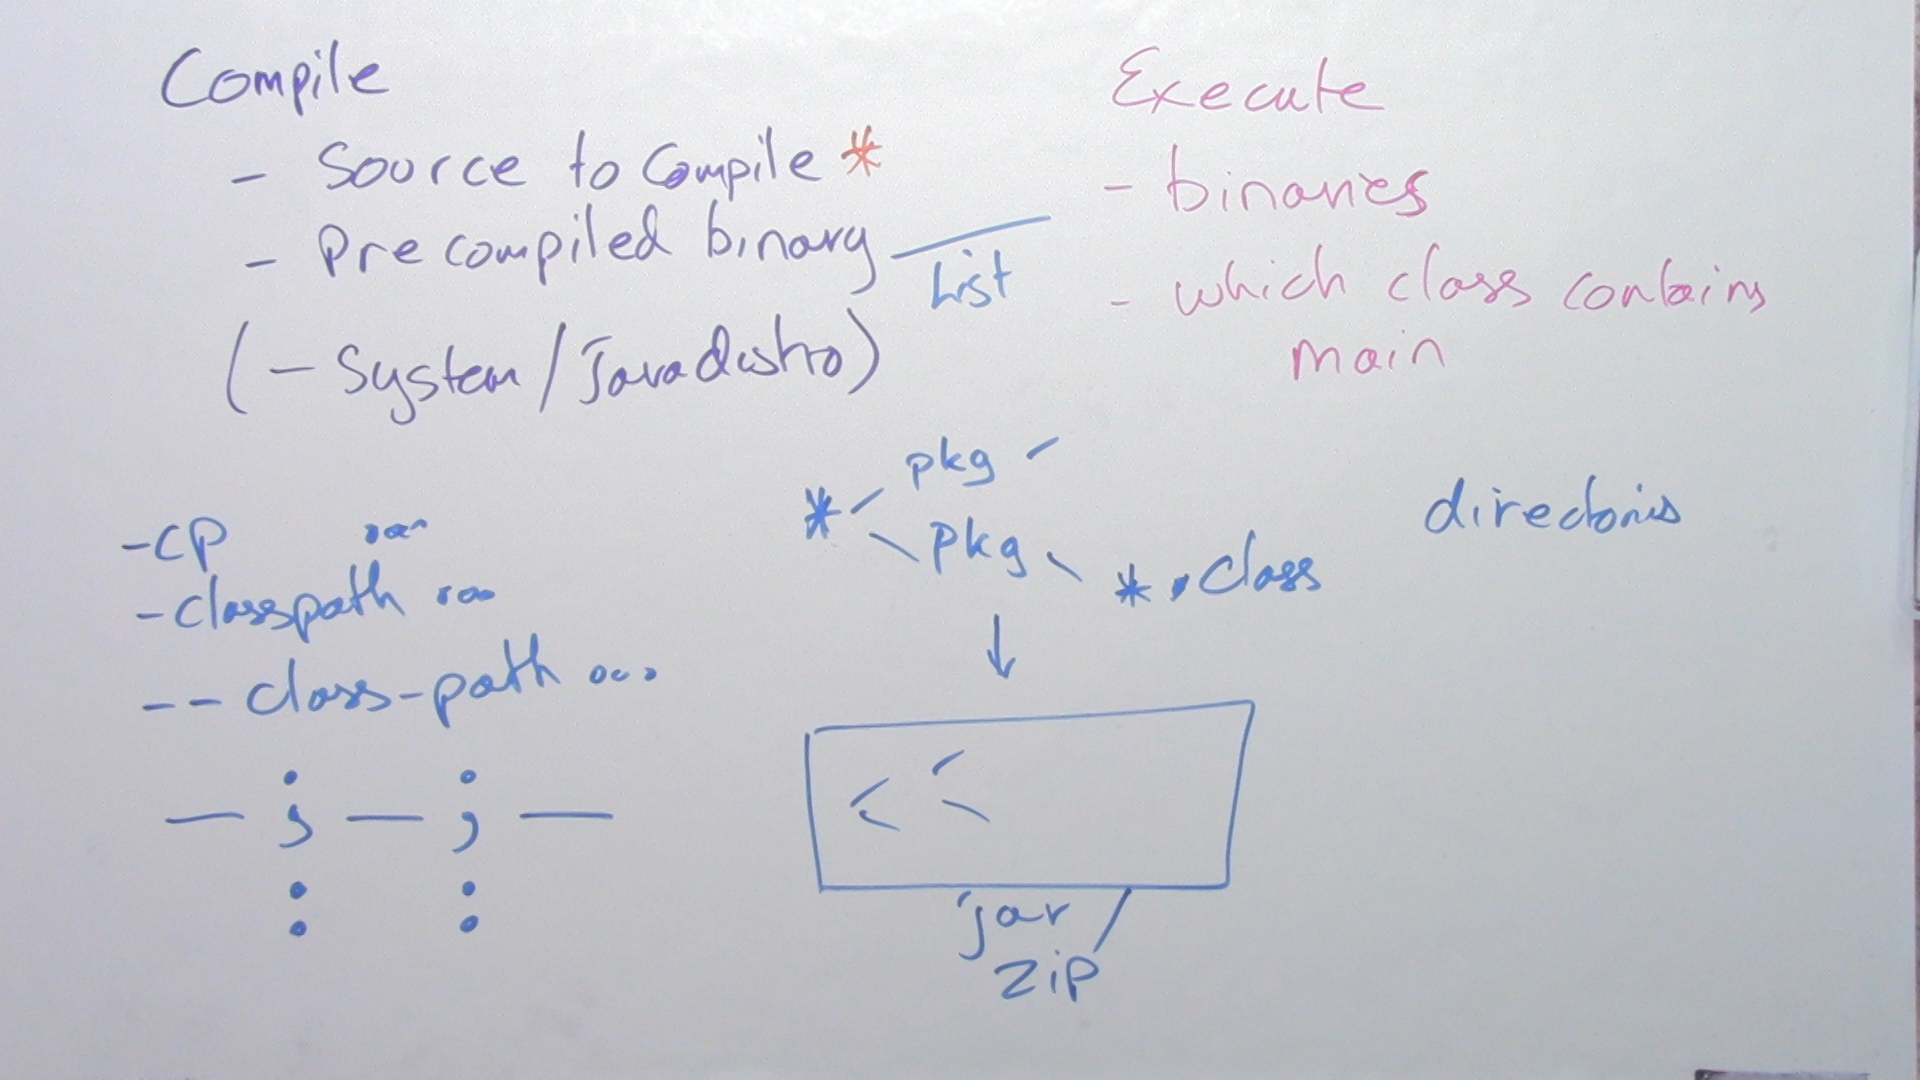 Compile
- Source to Compile *
- Precompiled binary
List
(- System / Java distro)
Execute
- binaries
- which class contains
main
- cp ...
- classpath ...
-- class-path ...
— ; — ; —
: :
pkg
*
pkg
* . class
directories
jar /
zip